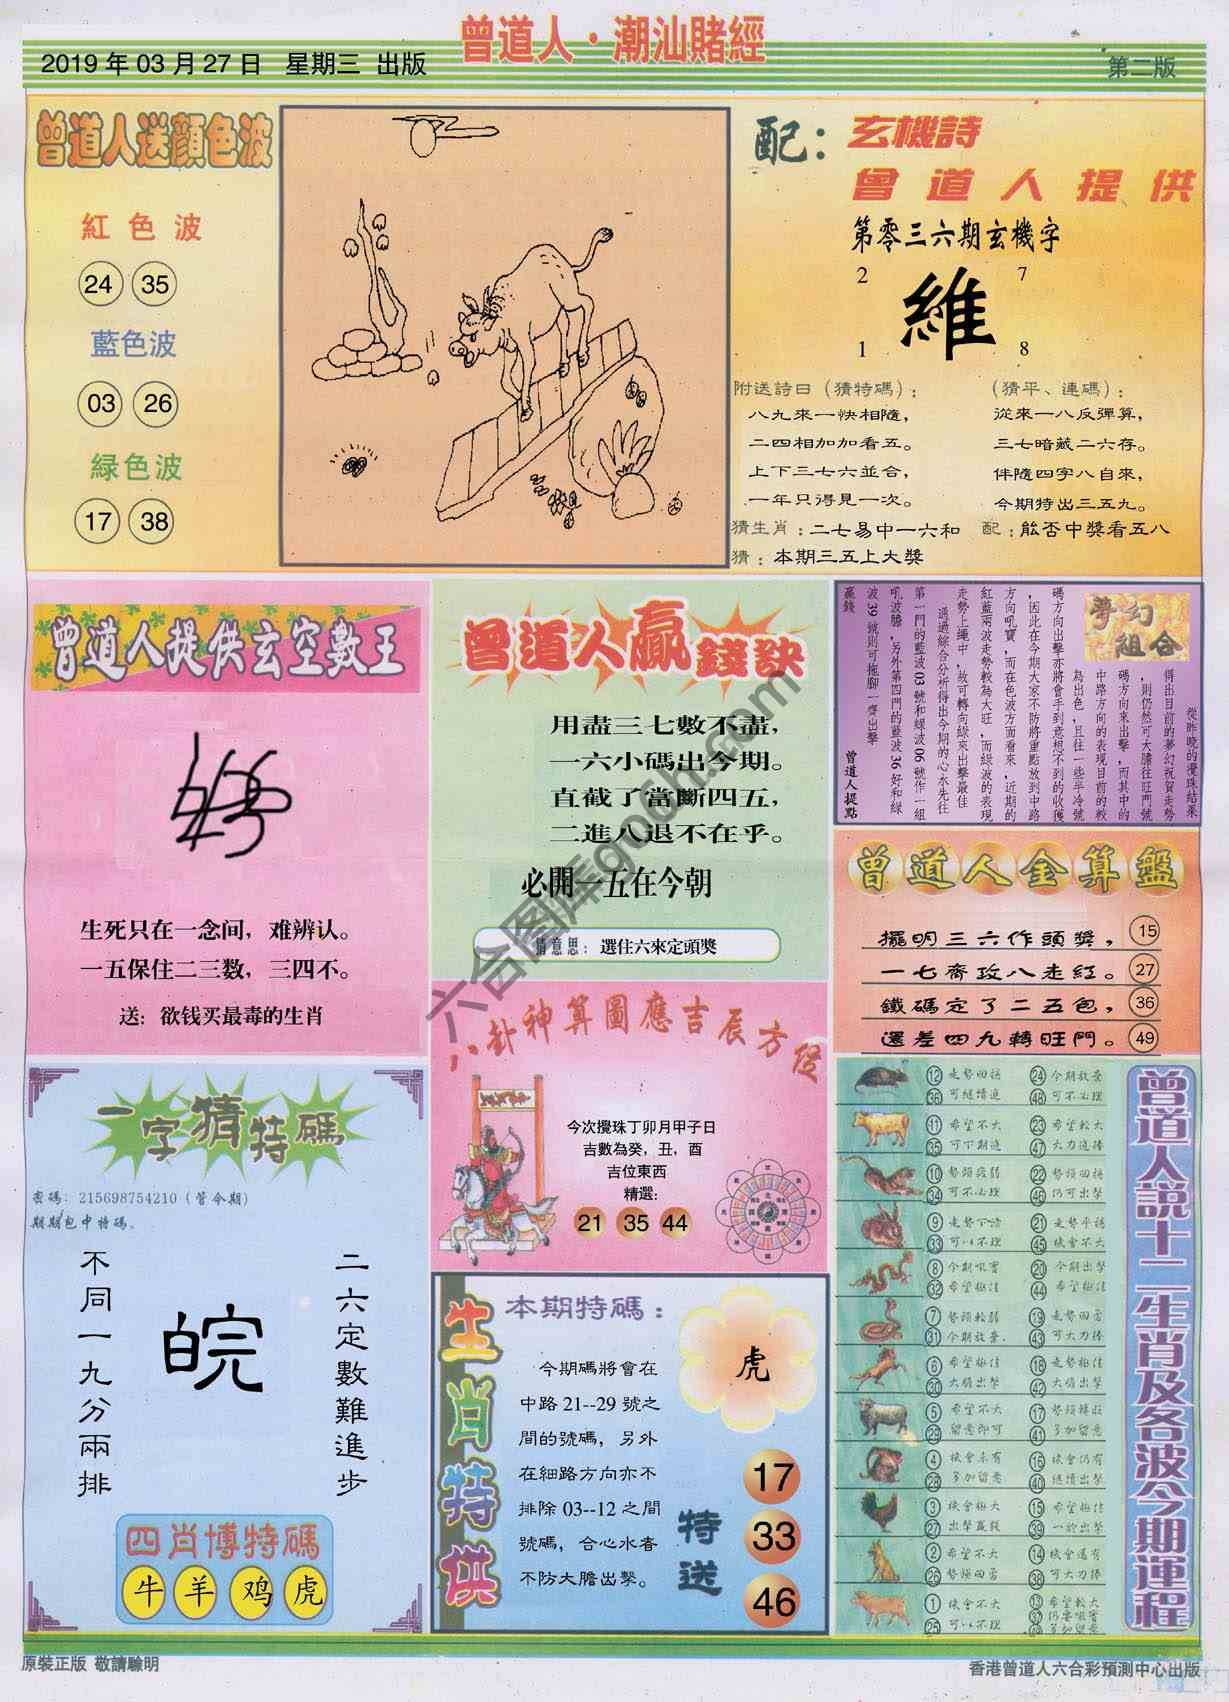 曾道人·潮汕賭經
2019 年 03 月 27 日 星期三 出版
第二版
曾道人送顔色波
紅色波
24 35
藍色波
03 26
緑色波
17 38
配：玄機詩
曾道人提供
第零三六期玄機字
2 7
維
1 8
附送詩曰（猜特碼）：
八九來一快相隨，
二四相加加看五。
上下三七六並合，
一年只得見一次。
（猜平、連碼）：
從來一八反彈算，
三七暗藏二六存。
伴隨四字八自來，
今期特出三五九。
猜生肖：二七易中一六和 配：能否中獎看五八
猜：本期三五上大獎
曾道人提供玄空數王
生死只在一念间，难辨认。
一五保住二三数，三四不。
送：欲钱买最毒的生肖
曾道人贏錢訣
用盡三七數不盡，
一六小碼出今期。
直截了當斷四五，
二進八退不在乎。
必開一五在今朝
猜意思：選住六來定頭獎
夢幻組合
從昨晚的攪珠結果
得出目前的夢幻祝賀走勢
，則仍然可大膽往旺門號
碼方向來出擊，而其中的
中路方向的表現目前的較
為出色，且往一些半冷號
碼方向出擊亦將會手到意想不到的收獲
，因此在今期大家不防將重點放到中路
方向吼寶，而在色波方面看來，近期的
紅藍兩波走勢較為大旺，而綠波的表現
走勢上繩中，故可轉向綠來出擊最佳
通過綜合分析得出今期的心水先往
第一門的藍波 03 號和綠波 06 號作一組
吼波膽，另外第四門的藍波 36 好和綠
波 39 號則可拖腳一齊出擊
贏錢
曾道人提點
曾道人金算盤
擺明三六作頭獎， 15
一七齊攻八走紅。 27
鐵碼定了二五包， 36
還差四九轉旺門。 49
八卦神算圖應吉辰方位
今次攪珠丁卯月甲子日
吉數為癸，丑，酉
吉位東西
精選：
21 35 44
一字猜特碼
密碼：215698754210（管令期）
期期包中特碼。
二六定數難進步
皖
不同一九分兩排
四肖博特碼
牛 羊 鸡 虎
生肖特供
本期特碼：
今期碼將會在
中路 21--29 號之
間的號碼，另外
在細路方向亦不
排除 03--12 之間
號碼，合心水者
不防大膽出擊。
虎
特送
17
33
46
曾道人説十二生肖及各波今期運程
12 走勢回揚 24 今期放棄
36 可繼續追 48 可不必理
11 希望不大 23 希望較大
35 可下期追 47 大力追捧
10 勢頭疲弱 22 勢頭回揚
34 可不必理 46 仍可出擊
9 走勢下滑 21 走勢平穩
33 可以不理 45 機會不大
8 今期吼實 20 今期出擊
32 希望極佳 44 希望極佳
7 勢頭軟弱 19 走勢回勇
31 今期放棄 43 可大力捧
6 希望極佳 18 走勢極佳
30 大膽出擊 42 大膽出擊
5 希望不大 17 勢頭
29 留意即可 41 多加留意
4 機會未有 16 機會仍有
28 多加留意 40 繼續出擊
3 機會極大 15 希望極佳
27 出擊贏錢 39 一於出擊
2 希望不大 14 機會還有
26 勢頭回勇 38 可大力捧
1 機會不大 13 希望較大
25 可以不理 37 仍要吼實
49 多加留意
六合图库go6h.com
原裝正版 敬請騐明
香港曾道人六合彩預測中心出版